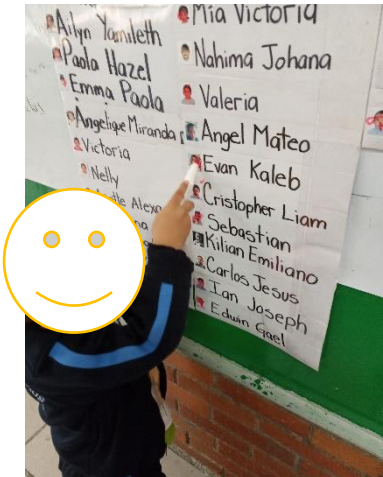 Ailyn Yamileth
Paola Hazel
Emma Paola
Angelique Miranda
Victoria
Nelly
Mia Victoria
Nahima Johana
Valeria
Angel Mateo
Evan Kaleb
Cristopher Liam
Sebastian
Kilian Emiliano
Carlos Jesus
Ian Joseph
Edwin Gael